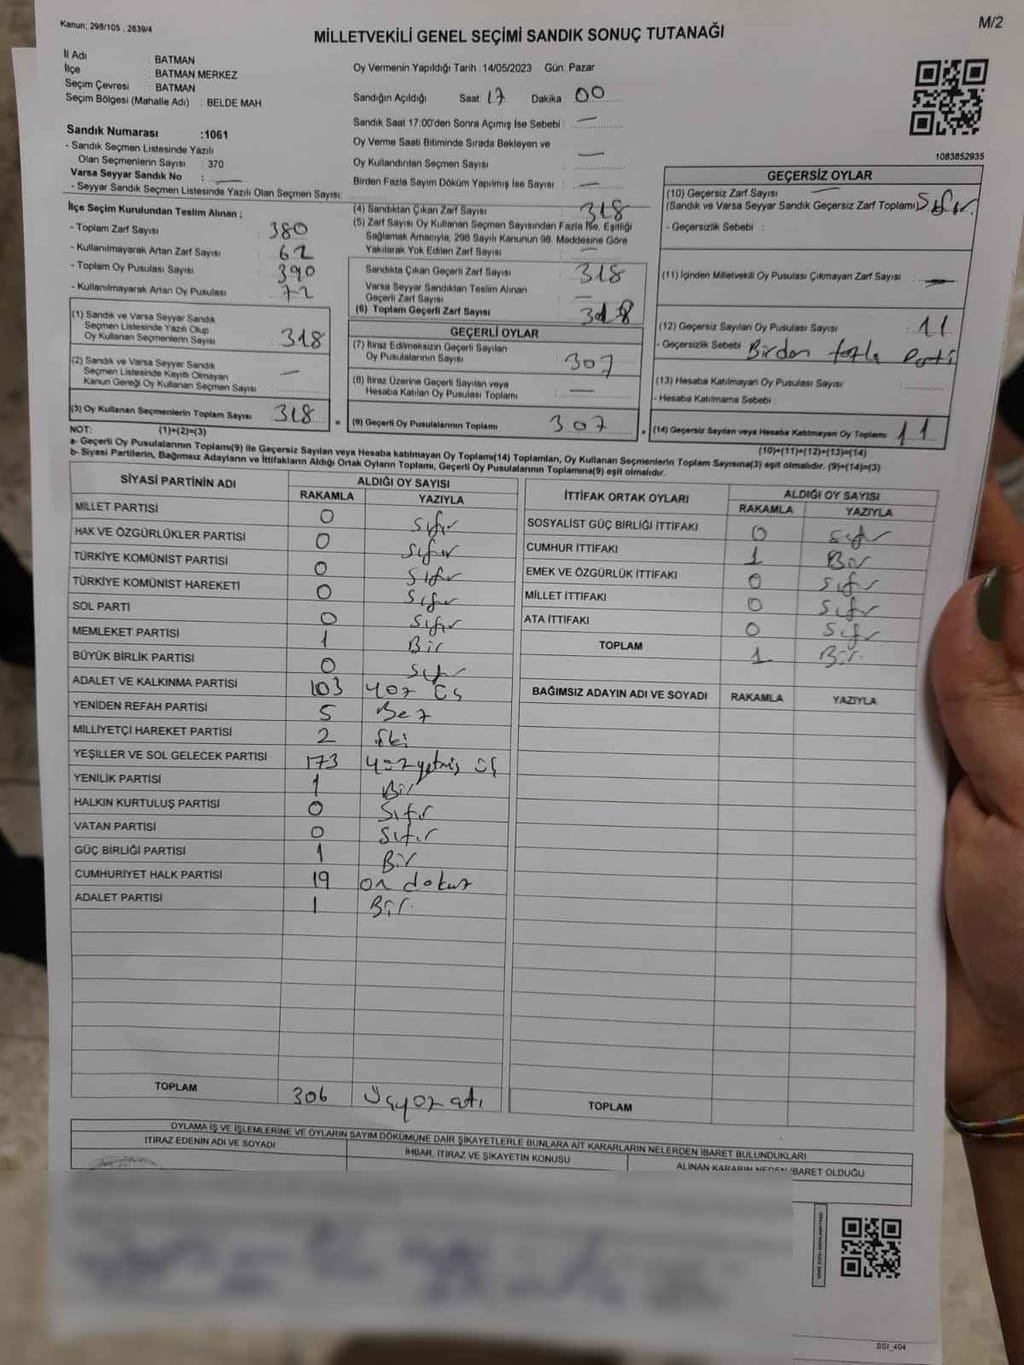 Kanun; 298/105 , 2839/4
M/2
MİLLETVEKİLİ GENEL SEÇİMİ SANDIK SONUÇ TUTANAĞI
İl Adı : BATMAN
İlçe : BATMAN MERKEZ
Seçim Çevresi : BATMAN
Seçim Bölgesi (Mahalle Adı) : BELDE MAH.
Sandık Numarası :1061
- Sandık Seçmen Listesinde Yazılı
Olan Seçmenlerin Sayısı : 370
Varsa Seyyar Sandık No : —
- Seyyar Sandık Seçmen Listesinde Yazılı Olan Seçmen Sayısı:
Oy Vermenin Yapıldığı Tarih :14/05/2023 Gün: Pazar
Sandığın Açıldığı Saat: 17 Dakika : 00
Sandık Saat 17:00'den Sonra Açımış İse Sebebi : —
Oy Verme Saati Bitiminde Sırada Bekleyen ve
Oy Kullandırılan Seçmen Sayısı : —
Birden Fazla Sayım Döküm Yapılmış İse Sayısı : —
1083852935
İlçe Seçim Kurulundan Teslim Alınan ;
- Toplam Zarf Sayısı : 380
- Kullanılmayarak Artan Zarf Sayısı : 62
- Toplam Oy Pusulası Sayısı : 390
- Kullanılmayarak Artan Oy Pusulası : 72
(1) Sandık ve Varsa Seyyar Sandık
Seçmen Listesinde Yazılı Olup
Oy Kullanan Seçmenlerin Sayısı : 318
(2) Sandık ve Varsa Seyyar Sandık
Seçmen Listesinde Kayıtlı Olmayan
Kanun Gereği Oy Kullanan Seçmen Sayısı : —
(3) Oy Kullanan Seçmenlerin Toplam Sayısı : 318
(4) Sandıktan Çıkan Zarf Sayısı : 318
(5) Zarf Sayısı Oy Kullanan Seçmen Sayısından Fazla İse, Eşitliği
Sağlamak Amacıyla; 298 Sayılı Kanunun 98. Maddesine Göre
Yakılarak Yok Edilen Zarf Sayısı : —
Sandıkta Çıkan Geçerli Zarf Sayısı : 318
Varsa Seyyar Sandıktan Teslim Alınan
Geçerli Zarf Sayısı : —
(6) Toplam Geçerli Zarf Sayısı : 318
GEÇERLİ OYLAR
(7) İtiraz Edilmeksizin Geçerli Sayılan
Oy Pusulalarının Sayısı : 307
(8) İtiraz Üzerine Geçerli Sayılan veya
Hesaba Katılan Oy Pusulası Toplamı : —
(9) Geçerli Oy Pusulalarının Toplamı : 307
GEÇERSİZ OYLAR
(10) Geçersiz Zarf Sayısı
(Sandık ve Varsa Seyyar Sandık Geçersiz Zarf Toplamı) Sıfır.
- Geçersizlik Sebebi :
(11) İçinden Milletvekili Oy Pusulası Çıkmayan Zarf Sayısı : —
(12) Geçersiz Sayılan Oy Pusulası Sayısı : 11
- Geçersizlik Sebebi : Birden fazla Parti
(13) Hesaba Katılmayan Oy Pusulası Sayısı :
- Hesaba Katılmama Sebebi :
(14) Geçersiz Sayılan veya Hesaba Katılmayan Oy Pusulası Toplamı : 11
NOT: (1)+(2)=(3) (10)+(11)+(12)+(13)=(14)
a- Geçerli Oy Pusulalarının Toplamı(9) ile Geçersiz Sayılan veya Hesaba katılmayan Oy Pusulası Toplamı(14) Toplamları, Oy Kullanan Seçmenlerin Toplam Sayısına(3) eşit olmalıdır. (9)+(14)=(3)
b- Siyasi Partilerin, Bağımsız Adayların ve İttifakların Aldığı Ortak Oyların Toplamı, Geçerli Oy Pusulalarının Toplamına(9) eşit olmalıdır.
SİYASİ PARTİNİN ADI ALDIĞI OY SAYISI
RAKAMLA YAZIYLA
MİLLET PARTİSİ 0 Sıfır
HAK VE ÖZGÜRLÜKLER PARTİSİ 0 Sıfır
TÜRKİYE KOMÜNİST PARTİSİ 0 Sıfır
TÜRKİYE KOMÜNİST HAREKETİ 0 Sıfır
SOL PARTİ 0 Sıfır
MEMLEKET PARTİSİ 1 Bir
BÜYÜK BİRLİK PARTİSİ 0 Sıfır
ADALET VE KALKINMA PARTİSİ 103 yüz üç
YENİDEN REFAH PARTİSİ 5 Beş
MİLLİYETÇİ HAREKET PARTİSİ 2 iki
YEŞİLLER VE SOL GELECEK PARTİSİ 173 yüz yetmiş üç
YENİLİK PARTİSİ 1 Bir
HALKIN KURTULUŞ PARTİSİ 0 Sıfır
VATAN PARTİSİ 0 Sıfır
GÜÇ BİRLİĞİ PARTİSİ 1 Bir
CUMHURİYET HALK PARTİSİ 19 on dokuz
ADALET PARTİSİ 1 Bir.
TOPLAM 306 Üçyüz altı
İTTİFAK ORTAK OYLARI ALDIĞI OY SAYISI
RAKAMLA YAZIYLA
SOSYALİST GÜÇ BİRLİĞİ İTTİFAKI 0 Sıfır
CUMHUR İTTİFAKI 1 Bir
EMEK VE ÖZGÜRLÜK İTTİFAKI 0 Sıfır
MİLLET İTTİFAKI 0 Sıfır
ATA İTTİFAKI 0 Sıfır
TOPLAM 1 Bir.
BAĞIMSIZ ADAYIN ADI VE SOYADI RAKAMLA YAZIYLA
TOPLAM
OYLAMA İŞ VE İŞLEMLERİNE VE OYLARIN SAYIM DÖKÜMÜNE DAİR ŞİKAYETLERLE BUNLARA AİT KARARLARIN NELERDEN İBARET BULUNDUKLARI
İTİRAZ EDENİN ADI VE SOYADI İHBAR, İTİRAZ VE ŞİKAYETİN KONUSU ALINAN KARARIN NEDEN İBARET OLDUĞU
SSI_404